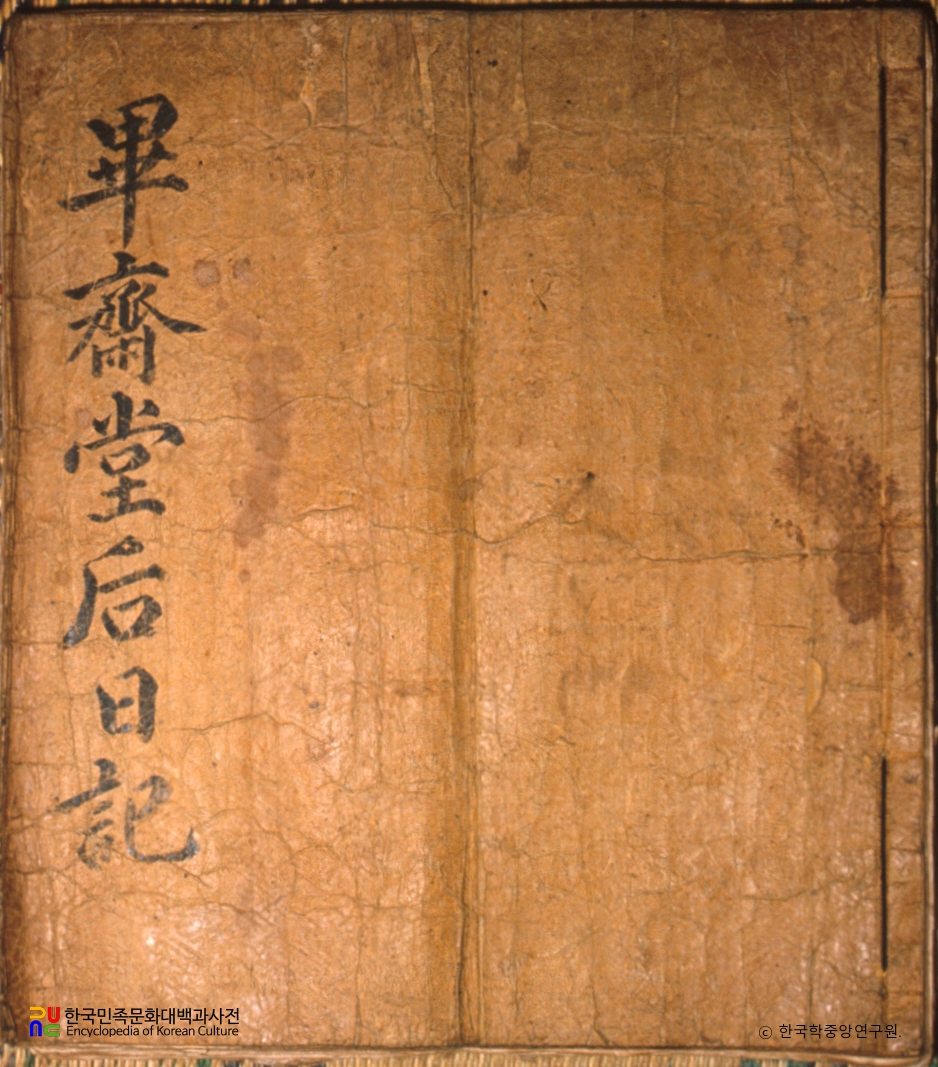 畢齋堂后日記
한국민족문화대백과사전
Encyclopedia of Korean Culture
ⓒ 한국학중앙연구원.